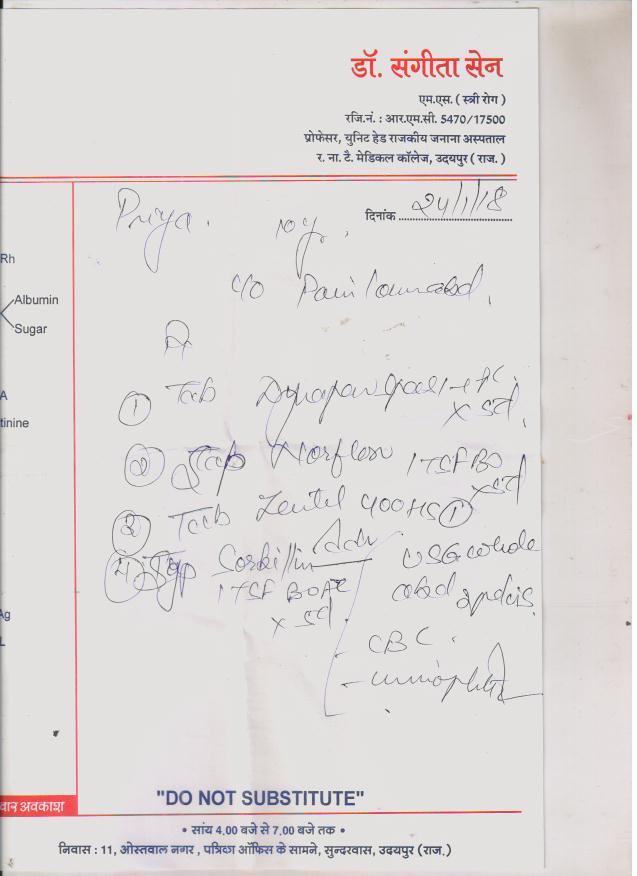 डॉ. संगीता सेन
एम.एस. ( स्त्री रोग )
रजि.नं. : आर.एम.सी. 5470/17500
प्रोफेसर, युनिट हेड राजकीय जनाना अस्पताल
र. ना. टै. मेडिकल कॉलेज, उदयपुर ( राज. )
दिनांक २५/1/18
Priya. 10y.
c/o Pain lower abd.
Rh
Albumin
Sugar
A
tinine
① Tab x 5d.
② Syp Norflox 1TSF BD x 5d
③ Tab Zentel 400 HS ①
Syp 1TSF x 5d.
Adv
USG whole abd
- CBC.
Ag
L
वार अवकाश
"DO NOT SUBSTITUTE"
• सांय 4.00 बजे से 7.00 बजे तक •
निवास : 11, ओस्तवाल नगर , पत्रिका ऑफिस के सामने, सुन्दरवास, उदयपुर (राज.)